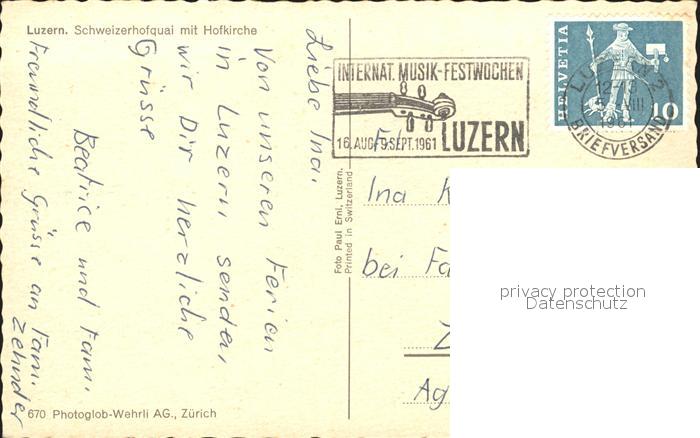 Luzern. Schweizerhofquai mit Hofkirche
Liebe Ina.
Von unseren Ferien
in Luzern senden
wir Dir herzliche
Grüsse
Beatrice und Fam.
Freundliche Grüsse an Fam.
Zehnder
670 Photoglob-Wehrli AG., Zürich
Foto Paul Erni, Luzern.
Printed in Switzerland
INTERNAT. MUSIK-FESTWOCHEN
16. AUG.-9. SEPT. 1961
LUZERN
HELVETIA
10
BRIEFVERSAND
Ina
bei
Ag
privacy protection
Datenschutz